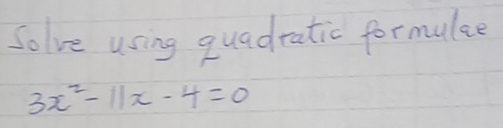 Solve using quadratic formulae
3x² - 11x - 4 = 0